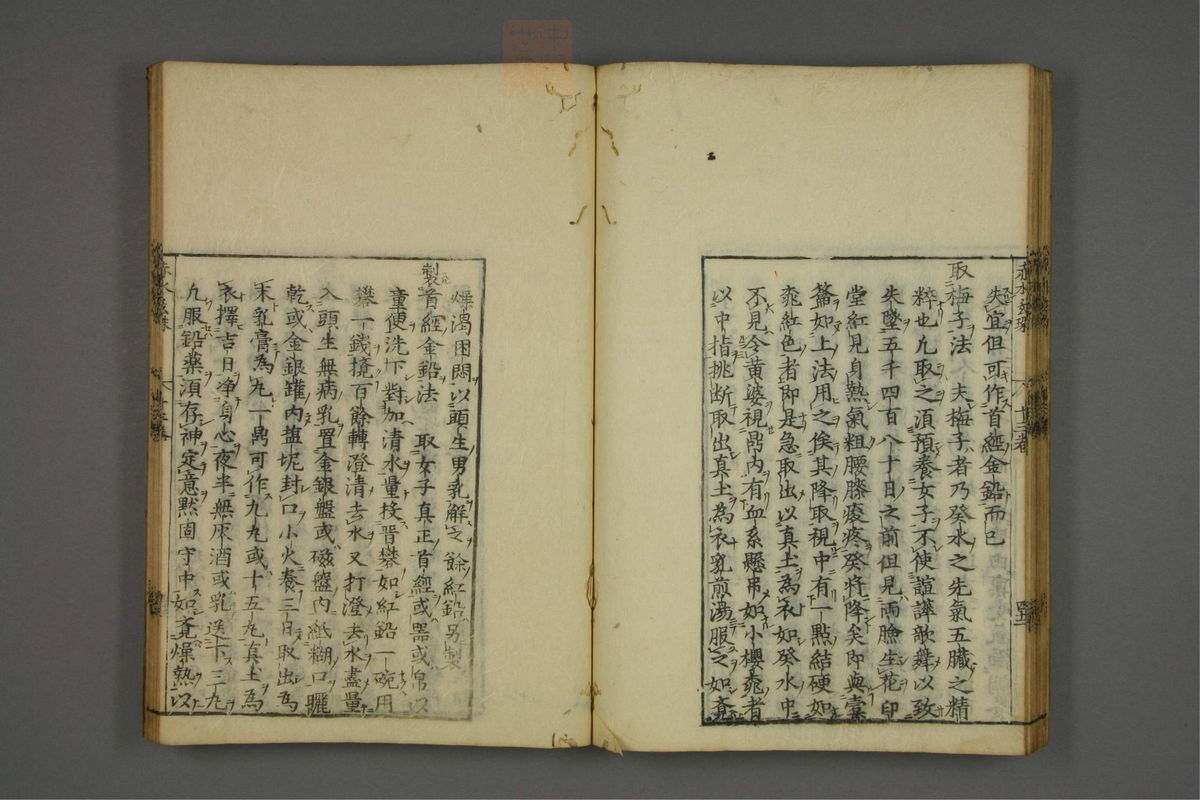 失宜但可作首經金鉛而已
取梅子法　夫梅子者乃癸水之先氣五臟之精
粹也凡取之須預養女子不使諠譁歌舞以致
失墜五千四百八十日之前但見兩臉生花印
堂紅見身熱氣粗腰膝痠疼癸將降矣即與囊
籥如上法用之俟其降取視中有一點結硬如
桃紅色者即是急取出以真土為衣如癸水中
不見令黃婆視鼎內有血系懸吊如小櫻桃者
以中指挑斷取出真土為衣乳煎湯服之如覺
燥渴困悶以頭生男乳解之餘紅鉛另製
製首經金鉛法　取女子真正首經或器或帛以
童便洗下對加清水量投晋礬如紅鉛一碗用
礬一錢攪百餘轉澄清去水又打澄去水盡量
入頭生無病乳置金銀盤或磁盤內紙糊口曬
乾或金銀罐內塩坭封口火養三日取出為
末乳膏為丸一鼎可作九丸或十五丸真土為
衣擇吉日净身心夜半無灰酒或乳送下三丸
凡服鉛藥須存神定意默固守中如覺燥熱以